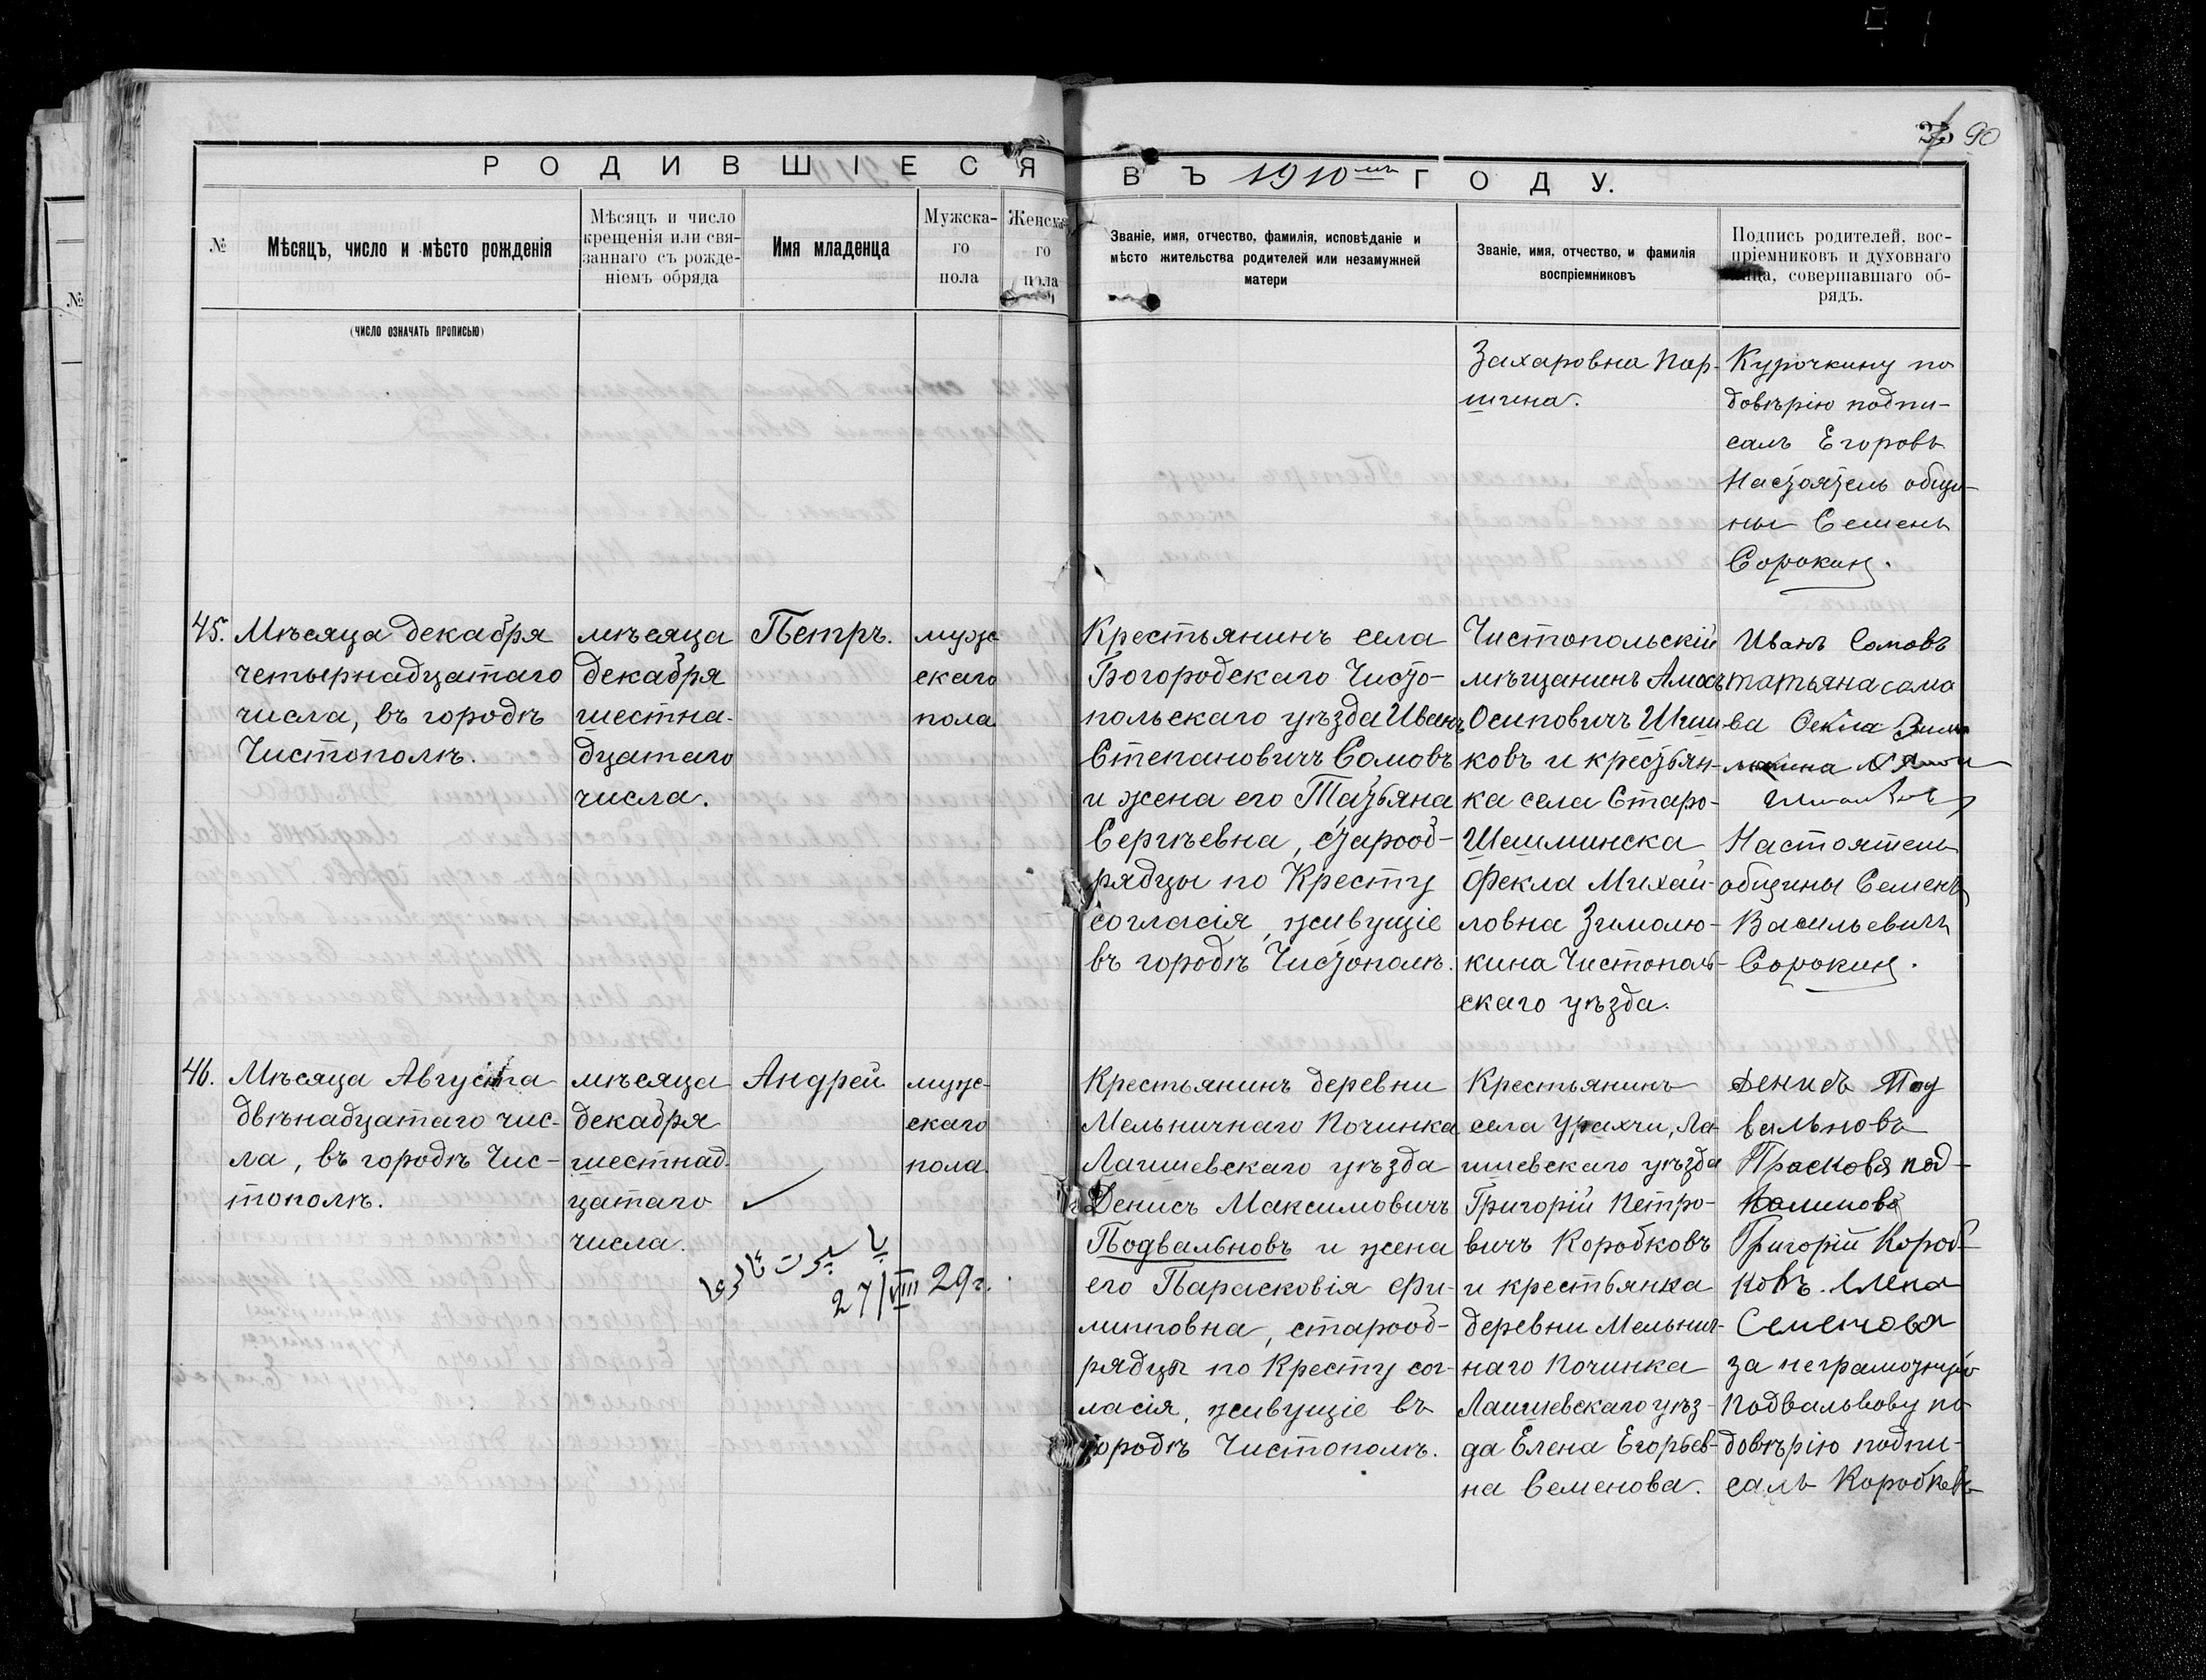 90
РОДИВШІЕСЯ ВЪ 1910мъ ГОДУ.
№
Мѣсяцъ, число и мѣсто рожденія
(число означать прописью)
Мѣсяцъ и число
крещенія или свя-
заннаго съ рожде-
ніемъ обряда
Имя младенца
Мужска-
го
пола
Женска-
го
пола
Званіе, имя, отчество, фамилія, исповѣданіе и
мѣсто жительства родителей или незамужней
матери
Званіе, имя, отчество, и фамилія
воспріемниковъ
Подпись родителей, вос-
пріемниковъ и духовнаго
лица, совершавшаго об-
рядъ.
Захаровна Пар-
шина.
Курочкину по
довѣрію подпи-
салъ Егоровъ
Настоятель общи-
ны Семенъ
Сорокинъ.
45.
Мѣсяца декабря
четырнадцатаго
числа, въ городѣ
Чистополѣ.
мѣсяца
декабря
шестна-
дцатаго
числа.
Петръ.
муж-
скаго
пола
Крестьянинъ села
Богородскаго Чисто-
польскаго уѣзда Иванъ
Степановичъ Сомовъ
и жена его Татьяна
Сергѣевна, старооб-
рядцы по Кресту
согласія, живущіе
въ городѣ Чистополѣ.
Чистопольскій
мѣщанинъ Амосъ
Осиповичъ Шиш
ковъ и крестьян-
ка села Старо-
Шешминска
Фекла Михай-
ловна Зимолю-
кина Чистополь-
скаго уѣзда.
Иванъ Сомовъ
татьяна само
ва Фекла
Настоятель
общины Семенъ
Васильевичъ
Сорокинъ.
46.
Мѣсяца Августа
двѣнадцатаго чис-
ла, въ городѣ Чис-
тополѣ.
мѣсяца
декабря
шестнад
цатаго
числа.
Андрей
27/VIII 29г.
муж-
скаго
пола.
Крестьянинъ деревни
Мельничнаго Починка
Лаишевскаго уѣзда
Денисъ Максимовичъ
Подвальновъ и жена
его Парасковія Фи-
липповна, старооб-
рядцы по Кресту сог-
ласія, живущіе въ
городѣ Чистополѣ.
Крестьянинъ
села Урахчи, Ла-
ишевскаго уѣзда
Григорій Петро-
вичъ Коробковъ
и крестьянка
деревни Мельнич-
наго Починка
Лаишевскаго уѣз-
да Елена Егорьев-
на Семенова.
Денисъ Под
вальновъ
Прасковя под-
Григорій Короб-
ковъ. Елена
Семенова
за неграмотную
Подвальнову по
довѣрію подпи-
салъ Коробковъ